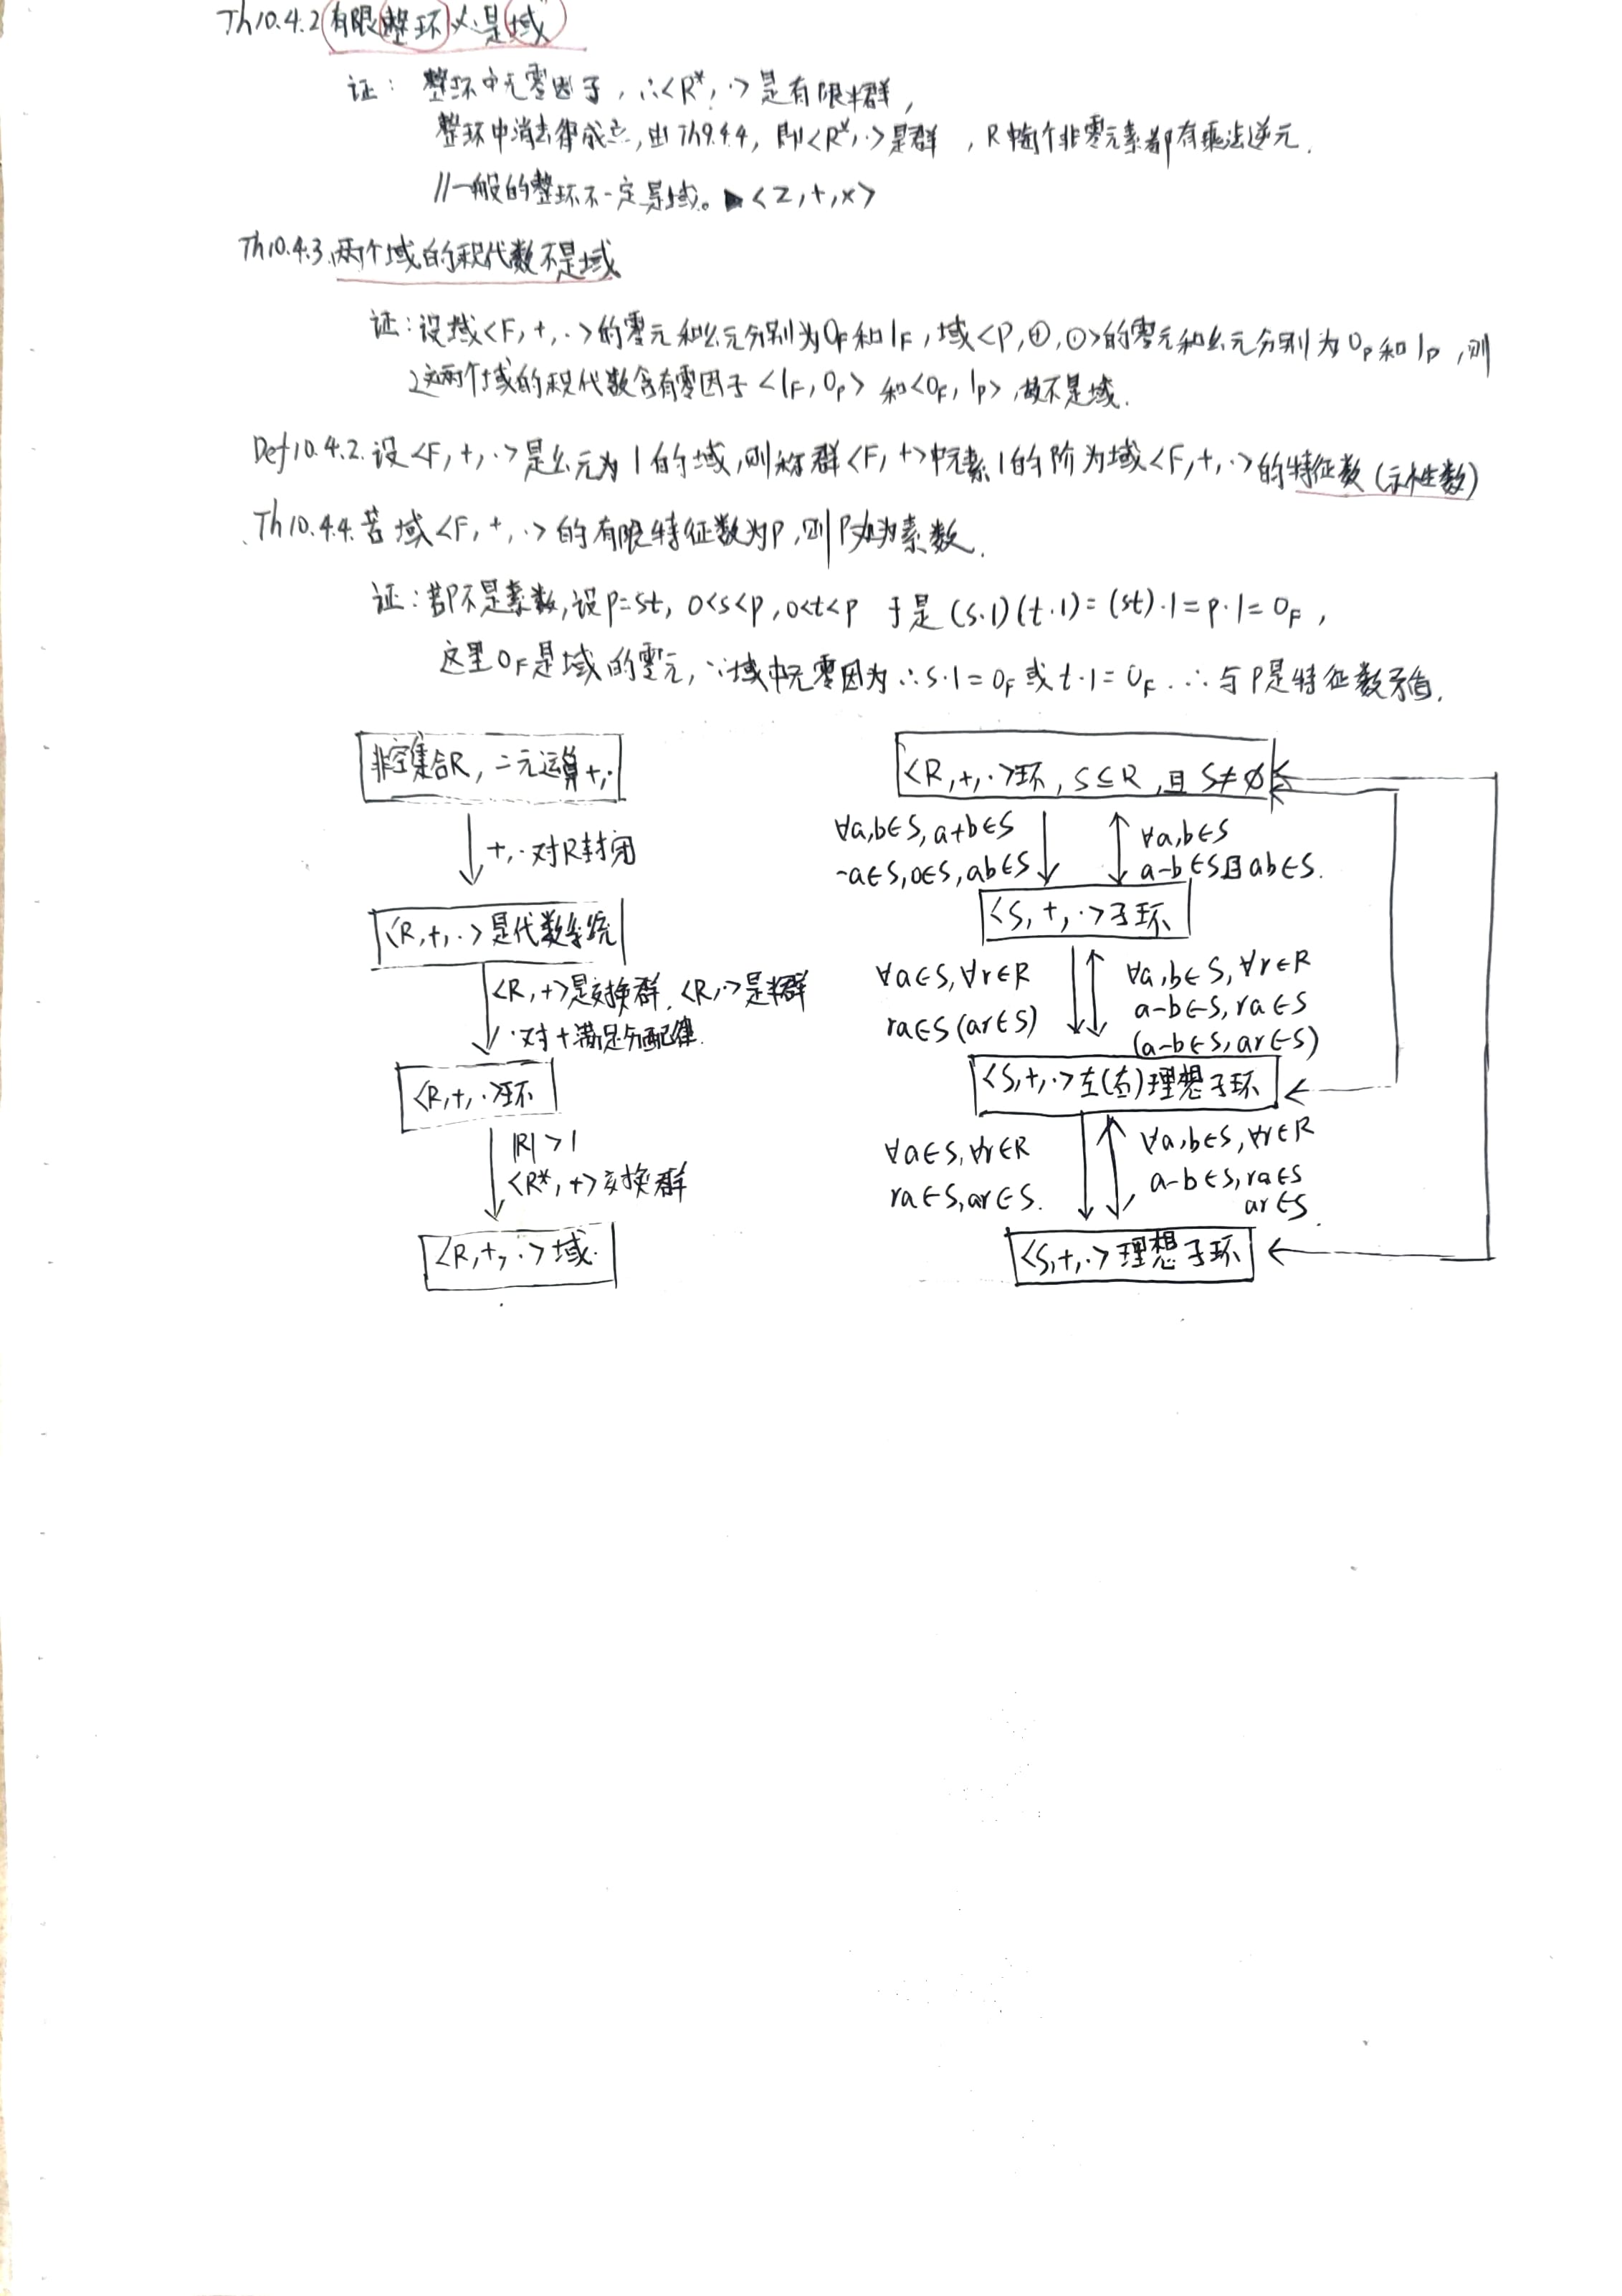 Th10.4.2 有限整环必是域
证: 整环中无零因子, ∴<R*, ·> 是有限半群,
整环中消去律成立, 由Th9.4.4, 即<R*, ·>是群, R中每个非零元素都有乘法逆元.
//一般的整环不一定是域。<Z, +, ×>
Th10.4.3. 两个域的积代数不是域
证: 设域<F, +, ·>的零元和幺元分别为0F和1F, 域<P, ⊕, ⊙>的零元和幺元分别为0P和1P, 则
这两个域的积代数含有零因子<1F, 0P> 和<0F, 1P>, 故不是域.
Def10.4.2. 设<F, +, ·>是幺元为1的域, 则称群<F, +>中元素1的阶为域<F, +, ·>的特征数(示性数)
Th10.4.4. 若域<F, +, ·>的有限特征数为P, 则P必为素数.
证: 若P不是素数, 设p=st, 0<s<p, 0<t<p 于是(s·1)(t·1)=(st)·1=p·1=0F,
这里0F是域的零元, ∵域中无零因为∴s·1=0F或t·1=0F. ∴与P是特征数矛盾.
非空集合R, 二元运算+, ·
+, ·对R封闭
<R, +, ·>是代数系统
<R, +>是交换群, <R, ·>是半群
·对+满足分配律.
<R, +, ·>环
|R|>1
<R*, +>交换群
<R, +, ·>域.
<R, +, ·>环, S⊆R, 且S≠∅
∀a,b∈S, a+b∈S
-a∈S, 0∈S, ab∈S
∀a,b∈S
a-b∈S且ab∈S.
<S, +, ·>子环
∀a∈S, ∀r∈R
ra∈S (ar∈S)
∀a,b∈S, ∀r∈R
a-b∈S, ra∈S
(a-b∈S, ar∈S)
<S, +, ·>左(右)理想子环
∀a∈S, ∀r∈R
ra∈S, ar∈S.
∀a,b∈S, ∀r∈R
a-b∈S, ra∈S
ar∈S.
<S, +, ·>理想子环